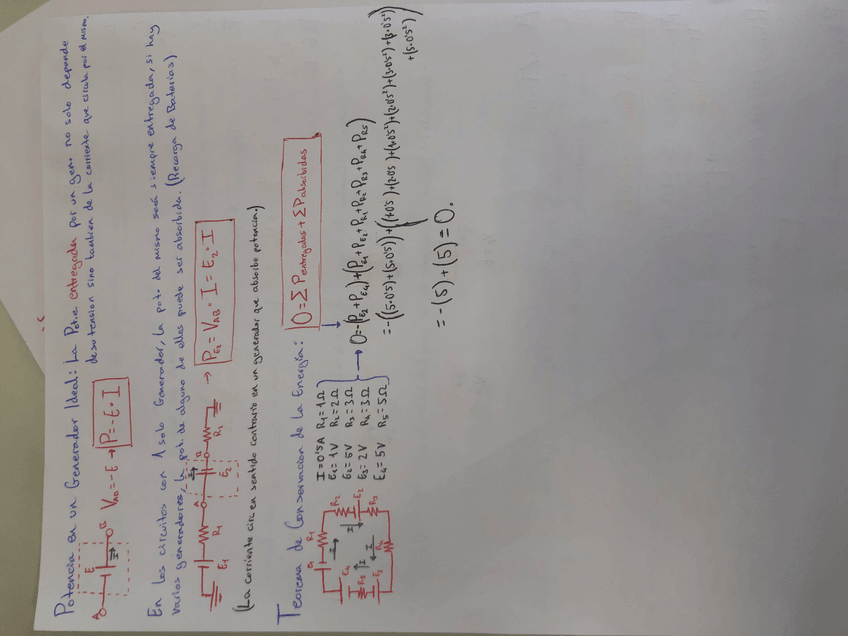 Potencia en un Generador Ideal: La Pot.e entregada por un gene no solo depende
de su tension sino tambien de la corriente que circula por el mismo.
A E B I V_AB = -E → P = -E · I
En los circuitos con 1 solo Generador, la pot. del mismo será siempre entregada, si hay
varios generadores, la pot. de alguno de ellos puede ser absorbida. (Recarga de Baterias)
E1 R1 A I E2 B R2 → P_E2 = V_AB · I = E2 · I
(La corriente circ. en sentido contrario en un generador que absorbe potencia.)
Teorema de Conservacion de la Energía: 0 = Σ P entregadas + Σ P absorbidas
I = 0'5A R1 = 1Ω
E1 = 1V R2 = 2Ω
E2 = 5V R3 = 3Ω
E3 = 2V R4 = 3Ω
E4 = 5V R5 = 5Ω
→ 0 = -(P_E2 + P_E4) + (P_E1 + P_E3 + P_R1 + P_R2 + P_R3 + P_R4 + P_R5)
= -((5·0'5) + (5·0'5)) + ((1·0'5) + (2·0'5) + (1·0'5²) + (2·0'5²) + (3·0'5²) + (3·0'5²)
+ (5·0'5²))
= -(5) + (5) = 0.